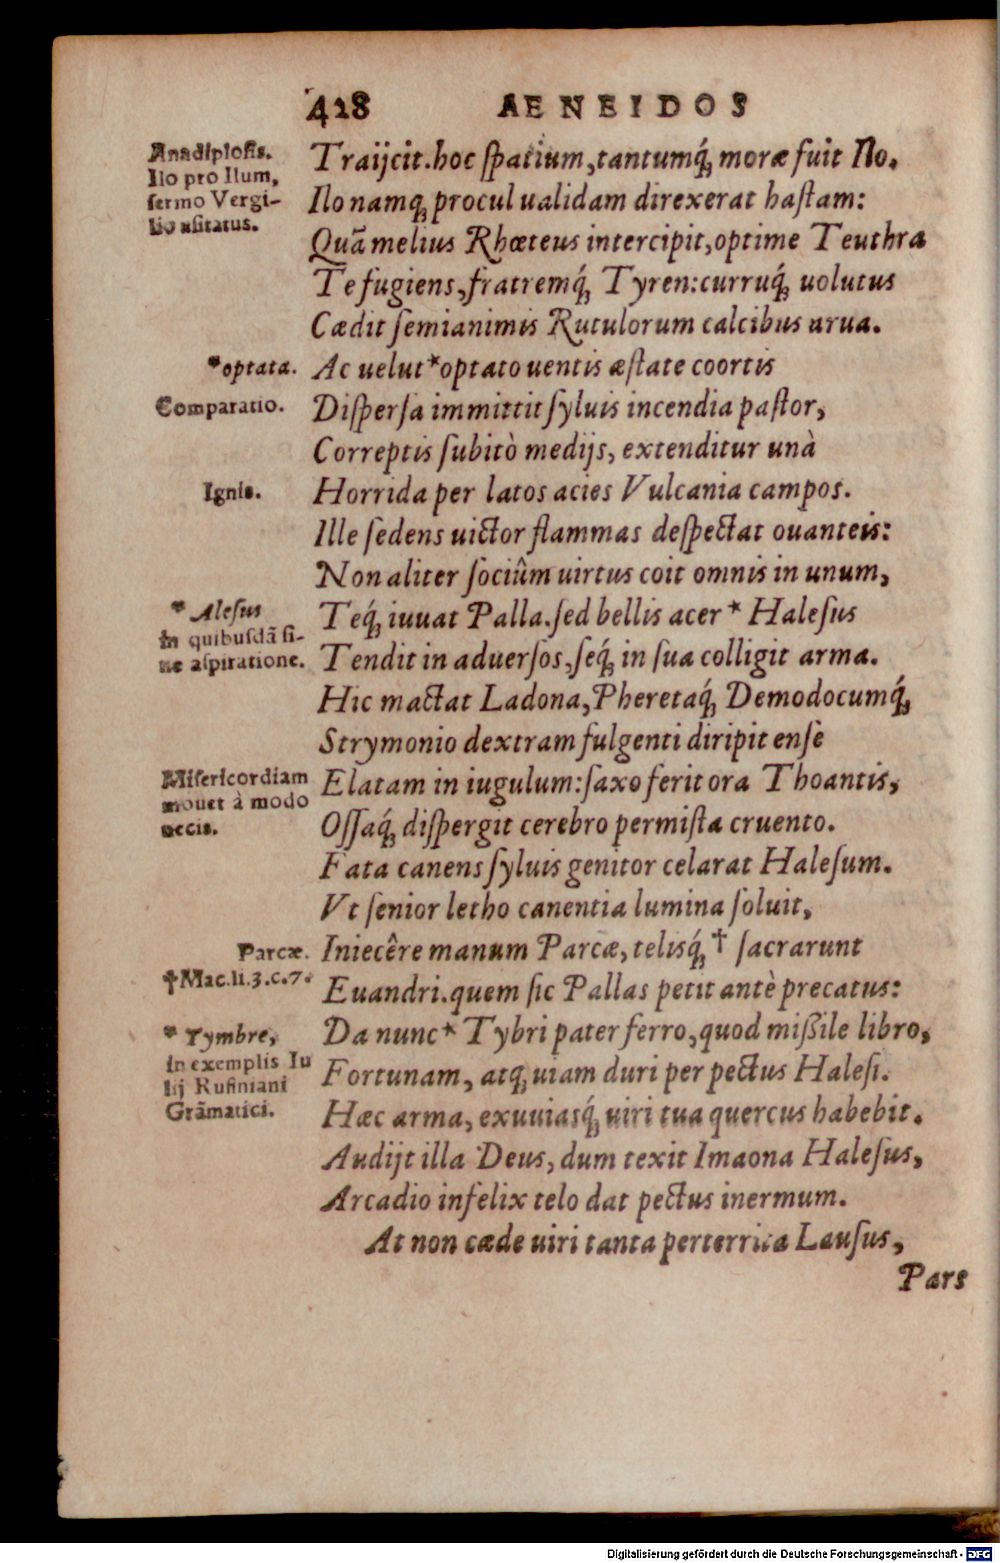 428 AENEIDOS
Anadiplosis.
Ilo pro Ilum,
sermo Vergi-
lio usitatus.
Traijcit. hoc spatium, tantumq́; moræ fuit Ilo.
Ilo namq; procul ualidam direxerat hastam:
Quā melius Rhœteus intercipit, optime Teuthra
Te fugiens, fratremq́; Tyren: curruq́; uolutus
Cædit semianimis Rutulorum calcibus arua.
*optata.
Ac uelut *optato uentis æstate coortis
Comparatio.
Dispersa immittit syluis incendia pastor,
Correptis subitò medijs, extenditur unà
Ignis.
Horrida per latos acies Vulcania campos.
Ille sedens uictor flammas despectat ouanteis:
Non aliter sociûm uirtus coit omnis in unum,
* Alesus
in quibusdã si-
ne aspiratione.
Teq́; iuuat Palla. sed bellis acer * Halesus
Tendit in aduersos, seq́; in sua colligit arma.
Hic mactat Ladona, Pheretaq́; Demodocumq́;
Strymonio dextram fulgenti diripit ense
Misericordiam
mouet à modo
necis.
Elatam in iugulum: saxo ferit ora Thoantis,
Ossaq́; dispergit cerebro permista cruento.
Fata canens syluis genitor celarat Halesum.
Vt senior letho canentia lumina soluit,
Parcæ.
Iniecêre manum Parcæ, telisq́; † sacrarunt
†Mac.li.3.c.7.
Euandri. quem sic Pallas petit antè precatus:
* Tymbre,
in exemplis Iu
lij Rufiniani
Grãmatici.
Da nunc * Tybri pater ferro, quod mißile libro,
Fortunam, atq; uiam duri per pectus Halesi.
Hæc arma, exuuiasq́; uiri tua quercus habebit.
Audijt illa Deus, dum texit Imaona Halesus,
Arcadio infelix telo dat pectus inermum.
At non cæde uiri tanta perterrita Lausus,
Pars
Digitalisierung gefördert durch die Deutsche Forschungsgemeinschaft - DFG